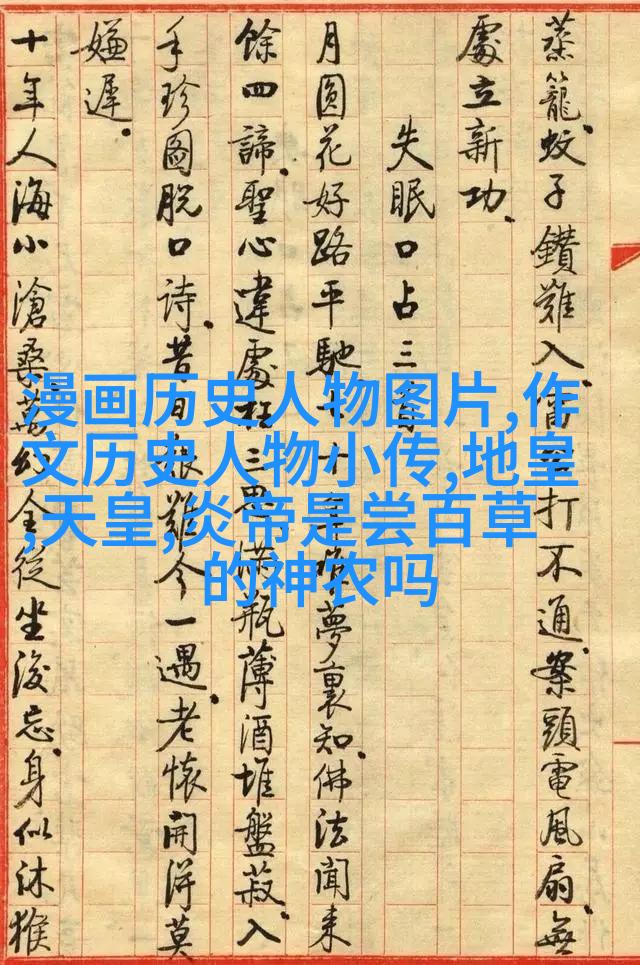 蒸籠.蚊子鑽難入.打不通.案頭電風扇.無
處立新功.
失眠口占三
月圓花好路平馳年夢裏知.佛法聞来
餘四諦.聖心違處三滿瓶薄酒堆盤菽.入
手珍圖脫口詩.昔日難今一遇.老懷開得莫
嫌遲.
十年人海小滄桑萬幻全從坐後忘.身似沐猴
漫画历史人物图片,作
文历史人物小传,地皇
,天皇,炎帝是尝百草
的神农吗